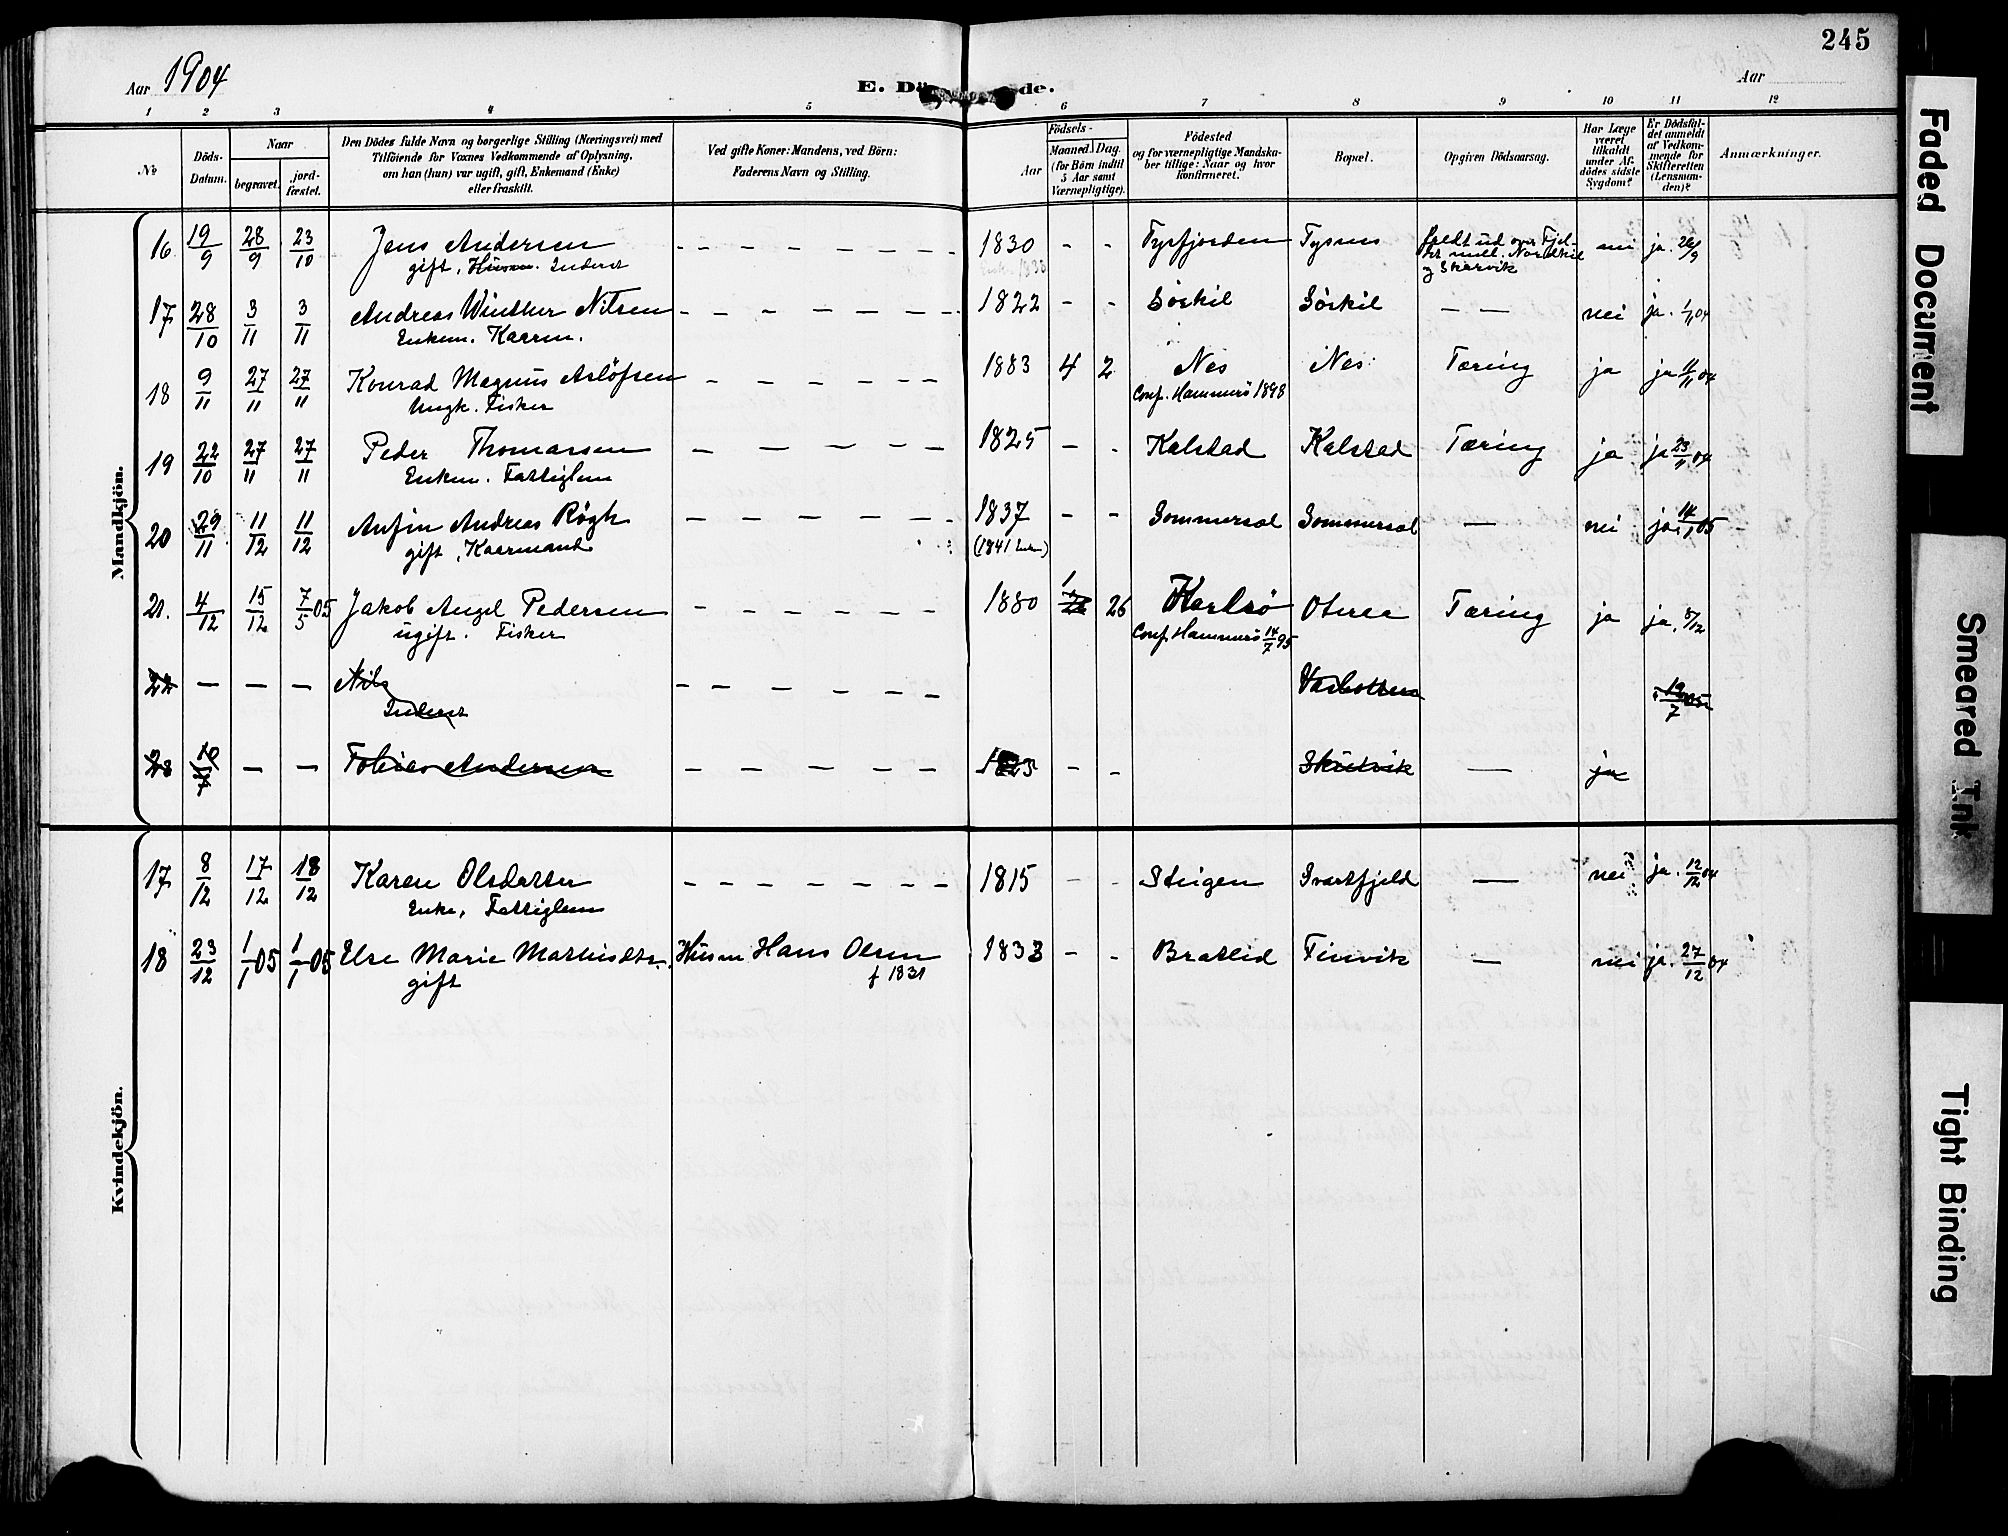 245
Aar 1904
E. Dö de.
Aar
1 2 3 4 5 6 7 8 9 10 11 12
No
Döds-Datum.
Naar
begravet.
jord-fæstet.
Den Dödes fulde Navn og borgerlige Stilling (Næringsvei) med
Tilföiende for Voxnes Vedkommende af Oplysning,
om han (hun) var ugift, gift, Enkemand (Enke)
eller fraskilt.
Ved gifte Koner: Mandens, ved Börn:
Faderens Navn og Stilling.
Födsels-
Aar
Maaned. Dag.
(for Börn indtil
5 Aar samt
Værnepligtige).
Födested
og for værnepligtige Mandska-
ber tillige: Naar og hvor
konfirmeret.
Bopæl.
Opgiven Dödsaarsag.
Har Læge
været
tilkaldt
under Af-
dödes sidste
Sygdom?
Er Dödsfal-
det anmeldt
af Vedkom-
mende for
Skifteretten
(Lensman-
den)?
Anmærkninger.
Mandkjön.
16 19/9 28/9 23/10 Jens Andersen - - - - - - - 1830 - - Tysfjorden Tysnes faldt ud over Fjel- nei ja 26/9
gift, Husm. Inderst
og Skarvik
17 28/10 3/11 3/11 Andreas Winther Nilsen - - - - - - - 1822 - - Sörkil Sörkil - - nei ja. 1/11 04
Enkem. Kaarm.
18 9/11 27/11 27/11 Konrad Magnus Aslöfsen - - - - - - 1883 4 2 Nes Nes Tæring ja ja 11/11 04
Ungk. Fisker Conf. Hammerö 1898
19 22/10 27/11 27/11 Peder Thomassen - - - - - - - 1825 - - Kalstad Kalstad Tæring ja ja 23/11 04
Enkem. Fattiglem
20 29/11 11/12 11/12 Anfin Andreas Rögh - - - - - - - 1837 - - Sommersel Sommersel - nei ja 14/1 05
gift, Kaarmand (1841
21. 4/12 15/12 7/5 05 Jakob Angel Pedersen - - - - - - - 1880 1 26 Karlsö Oteren Tæring ja ja. 8/12
ugift. Fisker Conf. Hammerö 14/7 95
22 - - - Nils - - - - - - - 19/7 05
Inderst
23 - - Tobias Andersen - - - - - - - 1823 - - Skutvik - ja
Kvindekjön.
17 8/12 17/12 18/12 Karen Olsdatter - - - - - - - - 1815 - - Steigen Svartfjeld - nei ja. 12/12 04
Enke, Fattiglem
18 23/12 1/1 05 1/1 05 Else Marie Mathisdtr. Husm Hans Olsen 1833 - - Bratlid Finvik - nei ja. 27/12 04
gift f 1831
Faded Document
Smeared Ink
Tight Binding